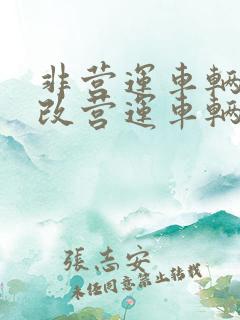 非营運車輛
改营運車輛
張志安
未经同意禁止转载